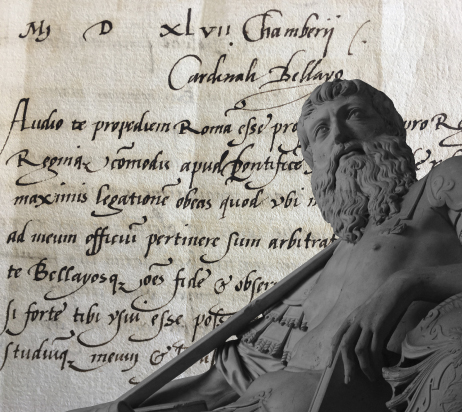 M D XLVII Chamberij
Cardinali Bellayo
Audio te propediem Romā esse pro
Reginæ cōmodis apud pontifice
maximis legationē obeas quod ubi
ad meum officiū pertinere sum arbitrat
te Bellayosq; oēs fide & obser
si forte tibi usui esse pos
studiūq; meum &